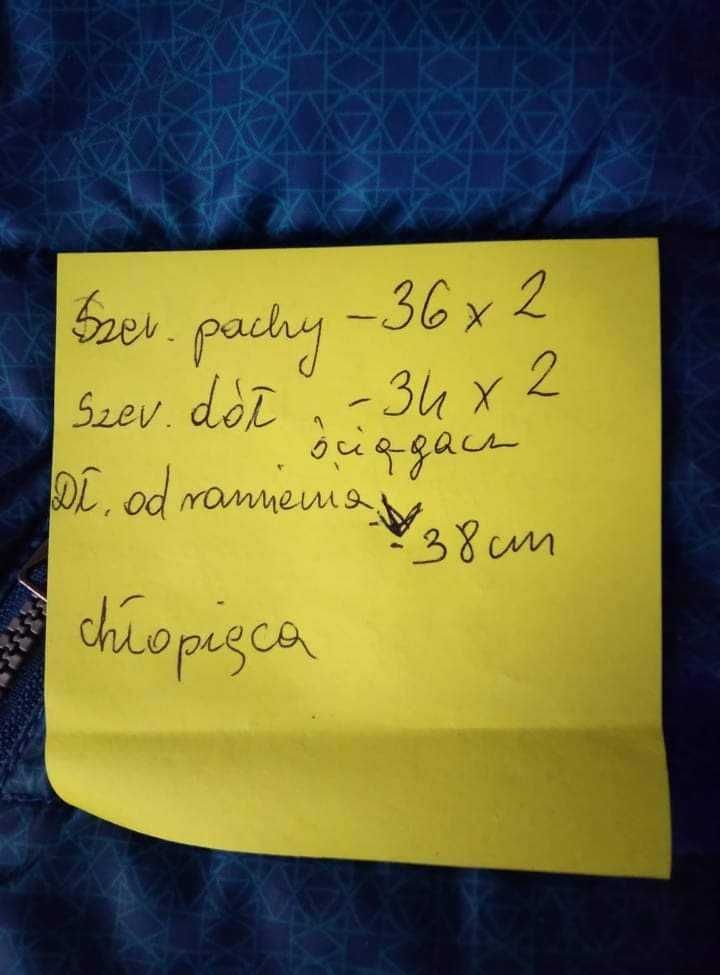 Szer. pachy - 36 x 2
Szer. dół - 34 x 2
ściągacz
Dł. od ramienia
- 38 cm
chłopięca